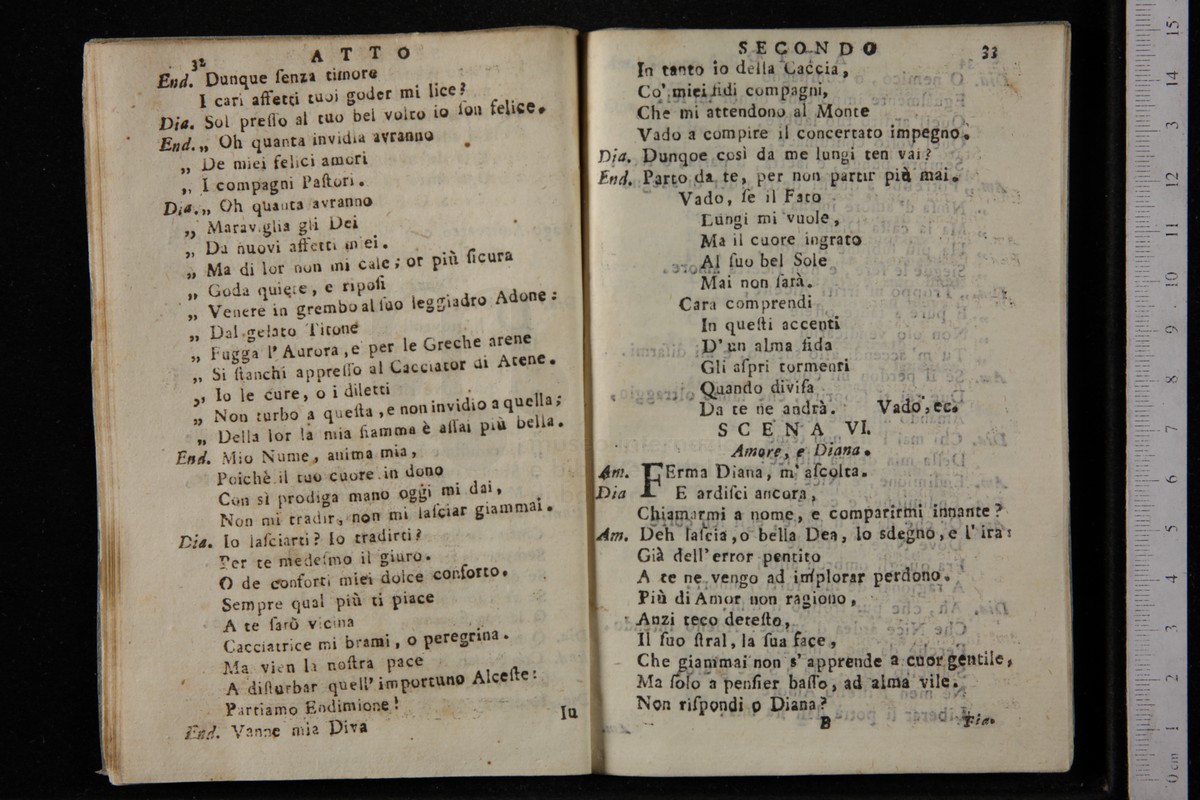 32 ATTO
End. Dunque ſenza timore
I cari affetti tuoi goder mi lice?
Dia. Sol preſſo al tuo bel volto io ſon felice.
End.„ Oh quanta invidia avranno
„ De miei felici amori
„ I compagni Paſtori.
Dia.„ Oh quanta avranno
„ Maraviglia gli Dei
„ Da nuovi affetti miei.
„ Ma di lor non mi cale; or più ſicura
„ Goda quiete, e ripoſi
„ Venere in grembo al ſuo leggiadro Adone:
„ Dal gelato Titone
„ Fugga l'Aurora, e per le Greche arene
„ Si ſtanchi appreſſo al Cacciator di Atene.
„ Io le cure, o i diletti
„ Non turbo a queſta, e non invidio a quella;
„ Della lor la mia fiamma è aſſai più bella.
End. Mio Nume, anima mia,
Poichè il tuo cuore in dono
Con sì prodiga mano oggi mi dai,
Non mi tradir, non mi laſciar giammai.
Dia. Io laſciarti? Io tradirti?
Per te medeſmo il giuro.
O de conforti miei dolce conforto.
Sempre qual più ti piace
A te ſarò vicina
Cacciatrice mi brami, o peregrina.
Ma vien la noſtra pace
A diſturbar quell'importuno Alceſte:
Partiamo Endimione!
End. Vanne mia Diva
In
SECONDO 33
In tanto io della Caccia,
Co' miei fidi compagni,
Che mi attendono al Monte
Vado a compire il concertato impegno.
Dia. Dunqoe così da me lungi ten vai?
End. Parto da te, per non partir più mai.
Vado, ſe il Fato
Lungi mi vuole,
Ma il cuore ingrato
Al ſuo bel Sole
Mai non ſarà.
Cara comprendi
In queſti accenti
D'un alma fida
Gli aſpri tormenti
Quando diviſa
Da te ne andrà. Vado, ec.
SCENA VI.
Amore, e Diana.
Am. FErma Diana, m' aſcolta.
Dia E ardiſci ancora,
Chiamarmi a nome, e comparirmi innante?
Am. Deh laſcia, o bella Dea, lo sdegno, e l' ira:
Già dell'error pentito
A te ne vengo ad implorar perdono.
Più di Amor non ragiono,
Anzi teco deteſto,
Il ſuo ſtral, la ſua face,
Che giammai non s' apprende a cuor gentile,
Ma ſolo a penſier baſſo, ad alma vile.
Non riſpondi o Diana?
B Dia.